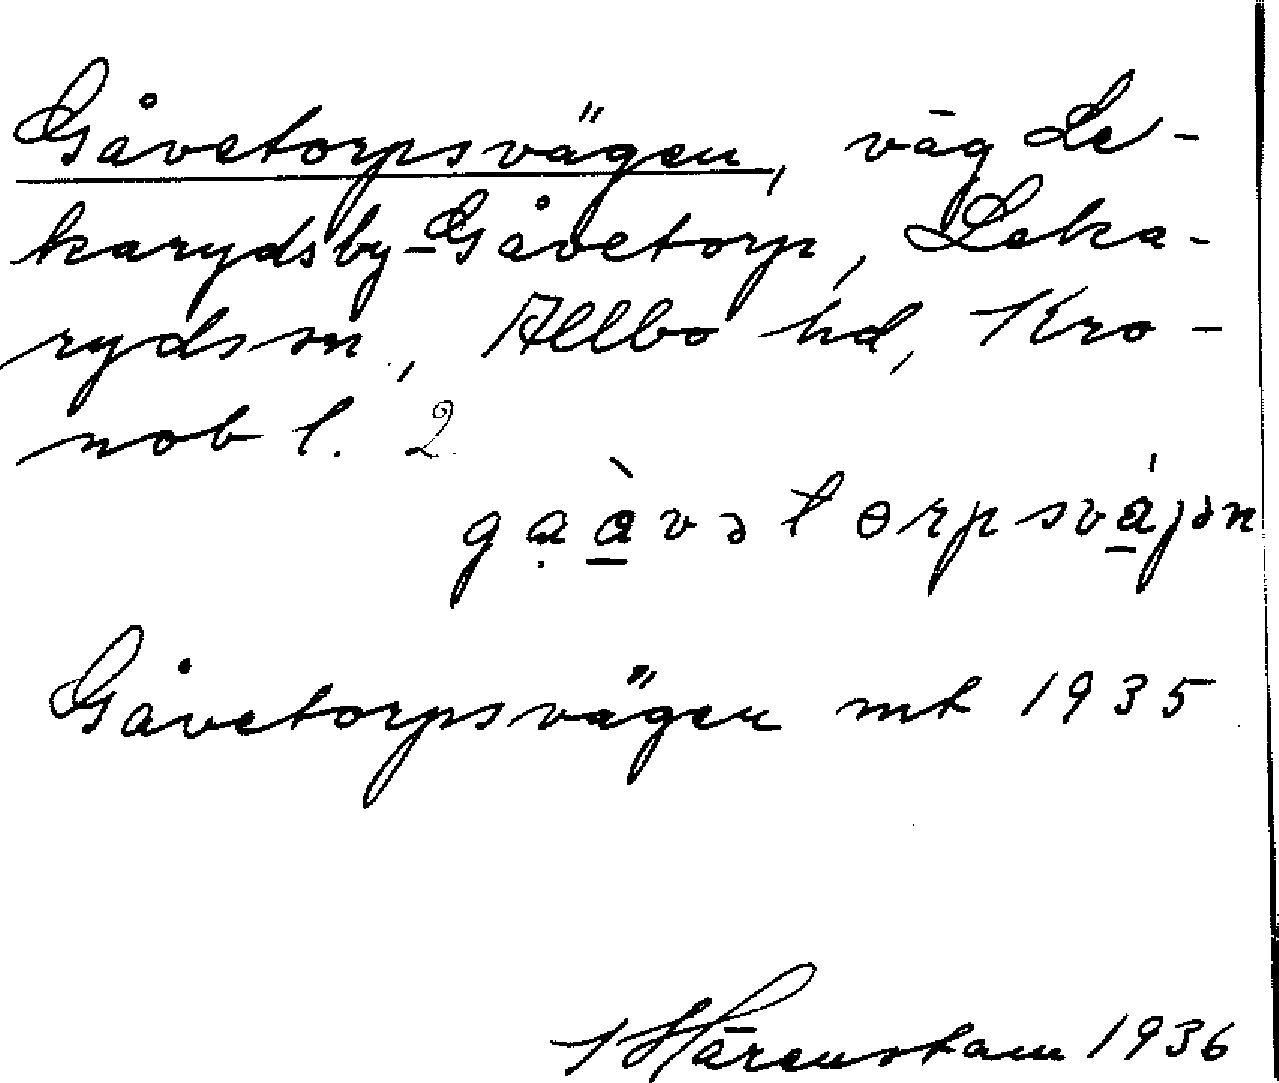 Gåvetorpsvägen, väg Le-
karydsby-Gåvetorp, Leka-
ryds sn, Allbo hd, Kro-
nob l. 2
gạà̱vətɵrpsvá̱jən
Gåvetorpsvägen mt 1935
Härenstam 1936